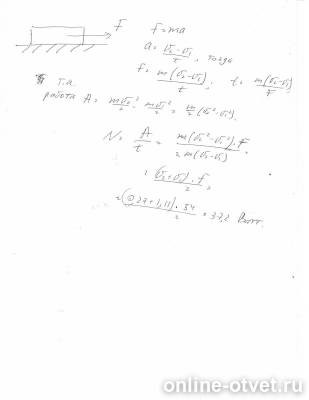 F
F=ma
a = (v₂-v₁)/t, тогда
F = m(v₂-v₁)/t, t = m(v₂-v₁)/F
т.к.
работа A = mv₂²/2 - mv₁²/2 = m/2 (v₂²-v₁²)
N = A/t = m(v₂²-v₁²)·F / 2m(v₂-v₁)
= (v₂+v₁)·F / 2 =
= (0,27+1,11)·54 / 2 = 37,2 Ватт.
online-otvet.ru